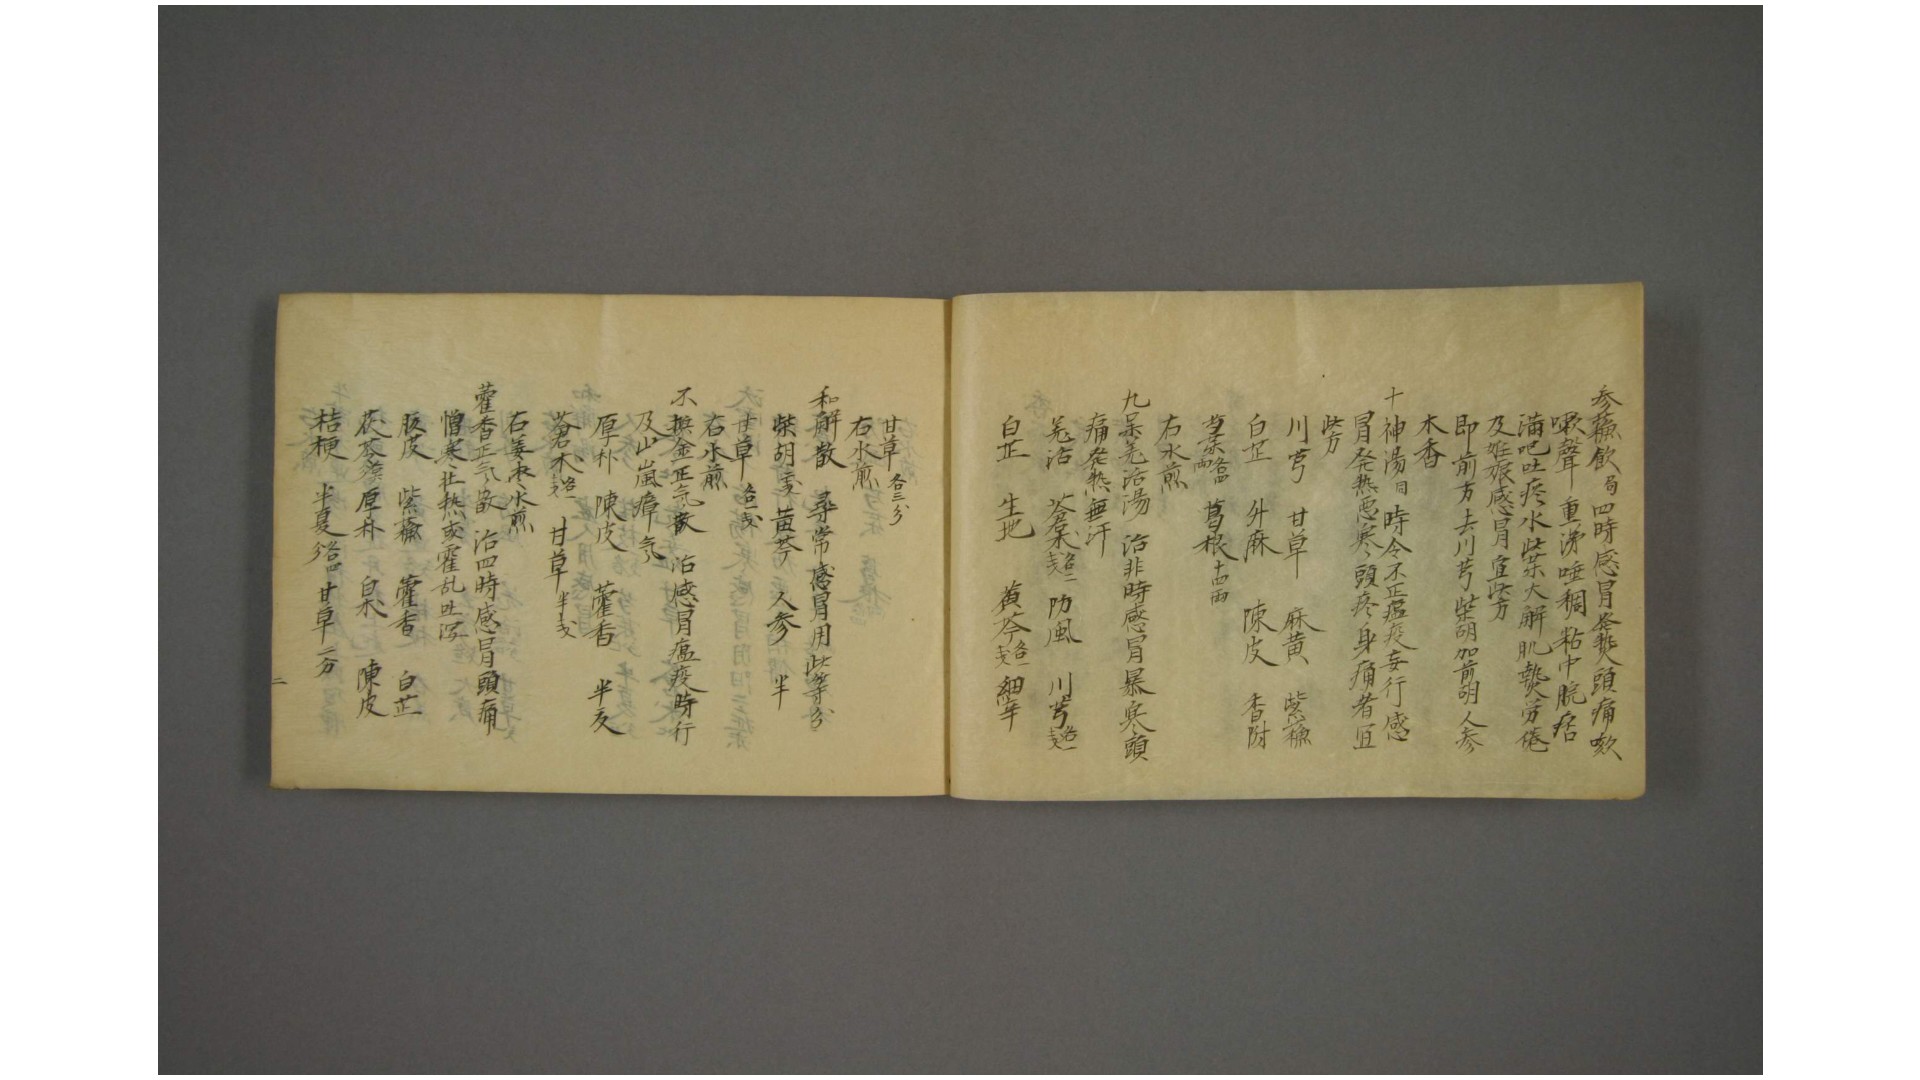 参蘓飲局 四時感冒発熱頭痛咳
嗽聲重涕唾稠粘中脘痞
満吐痰水
及妊娠感冒宜此方
即前方去川芎柴胡加前胡人参
木香
十神湯日 時令不正瘟疫妄行感
冒発热悪寒頭疼身痛者宜
此方
川芎 甘草 麻黄 紫蘓
白芷 升麻 陳皮 香附
葛根十四両
右水煎
九味羌活湯 治非時感冒暴寒頭
痛発热無汗
羌活 蒼术各二戈 防風 川芎各一戈
白芷 生地 黄芩各一戈 細辛
甘草各三分
右水煎
和解散 尋常感冒用此等分
柴胡 黄芩 人参 半
甘草各一戈
右水煎
不換金正気散 治感冒瘟疫時行
及山嵐瘴気
厚朴 陳皮 藿香 半夏
蒼术各一戈 甘草半戈
右姜枣水煎
藿香正气散 治四時感冒頭痛
憎寒壮热或霍乱吐泻
腹皮 紫蘓 藿香 白芷
茯苓 厚朴 白术 陳皮
桔梗 半夏 甘草二分
二